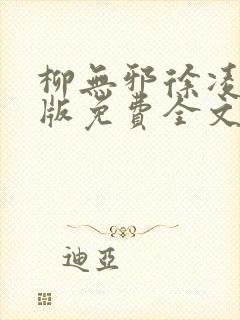 柳無邪徐凌
版免費全文
迪亞